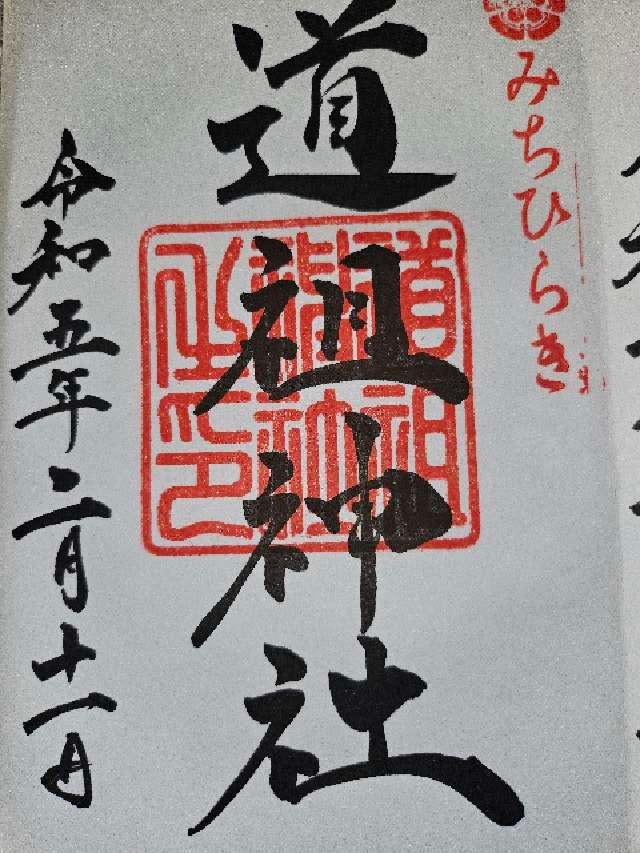 みちひらき
道祖神社
道祖神社之印
令和五年二月十一日